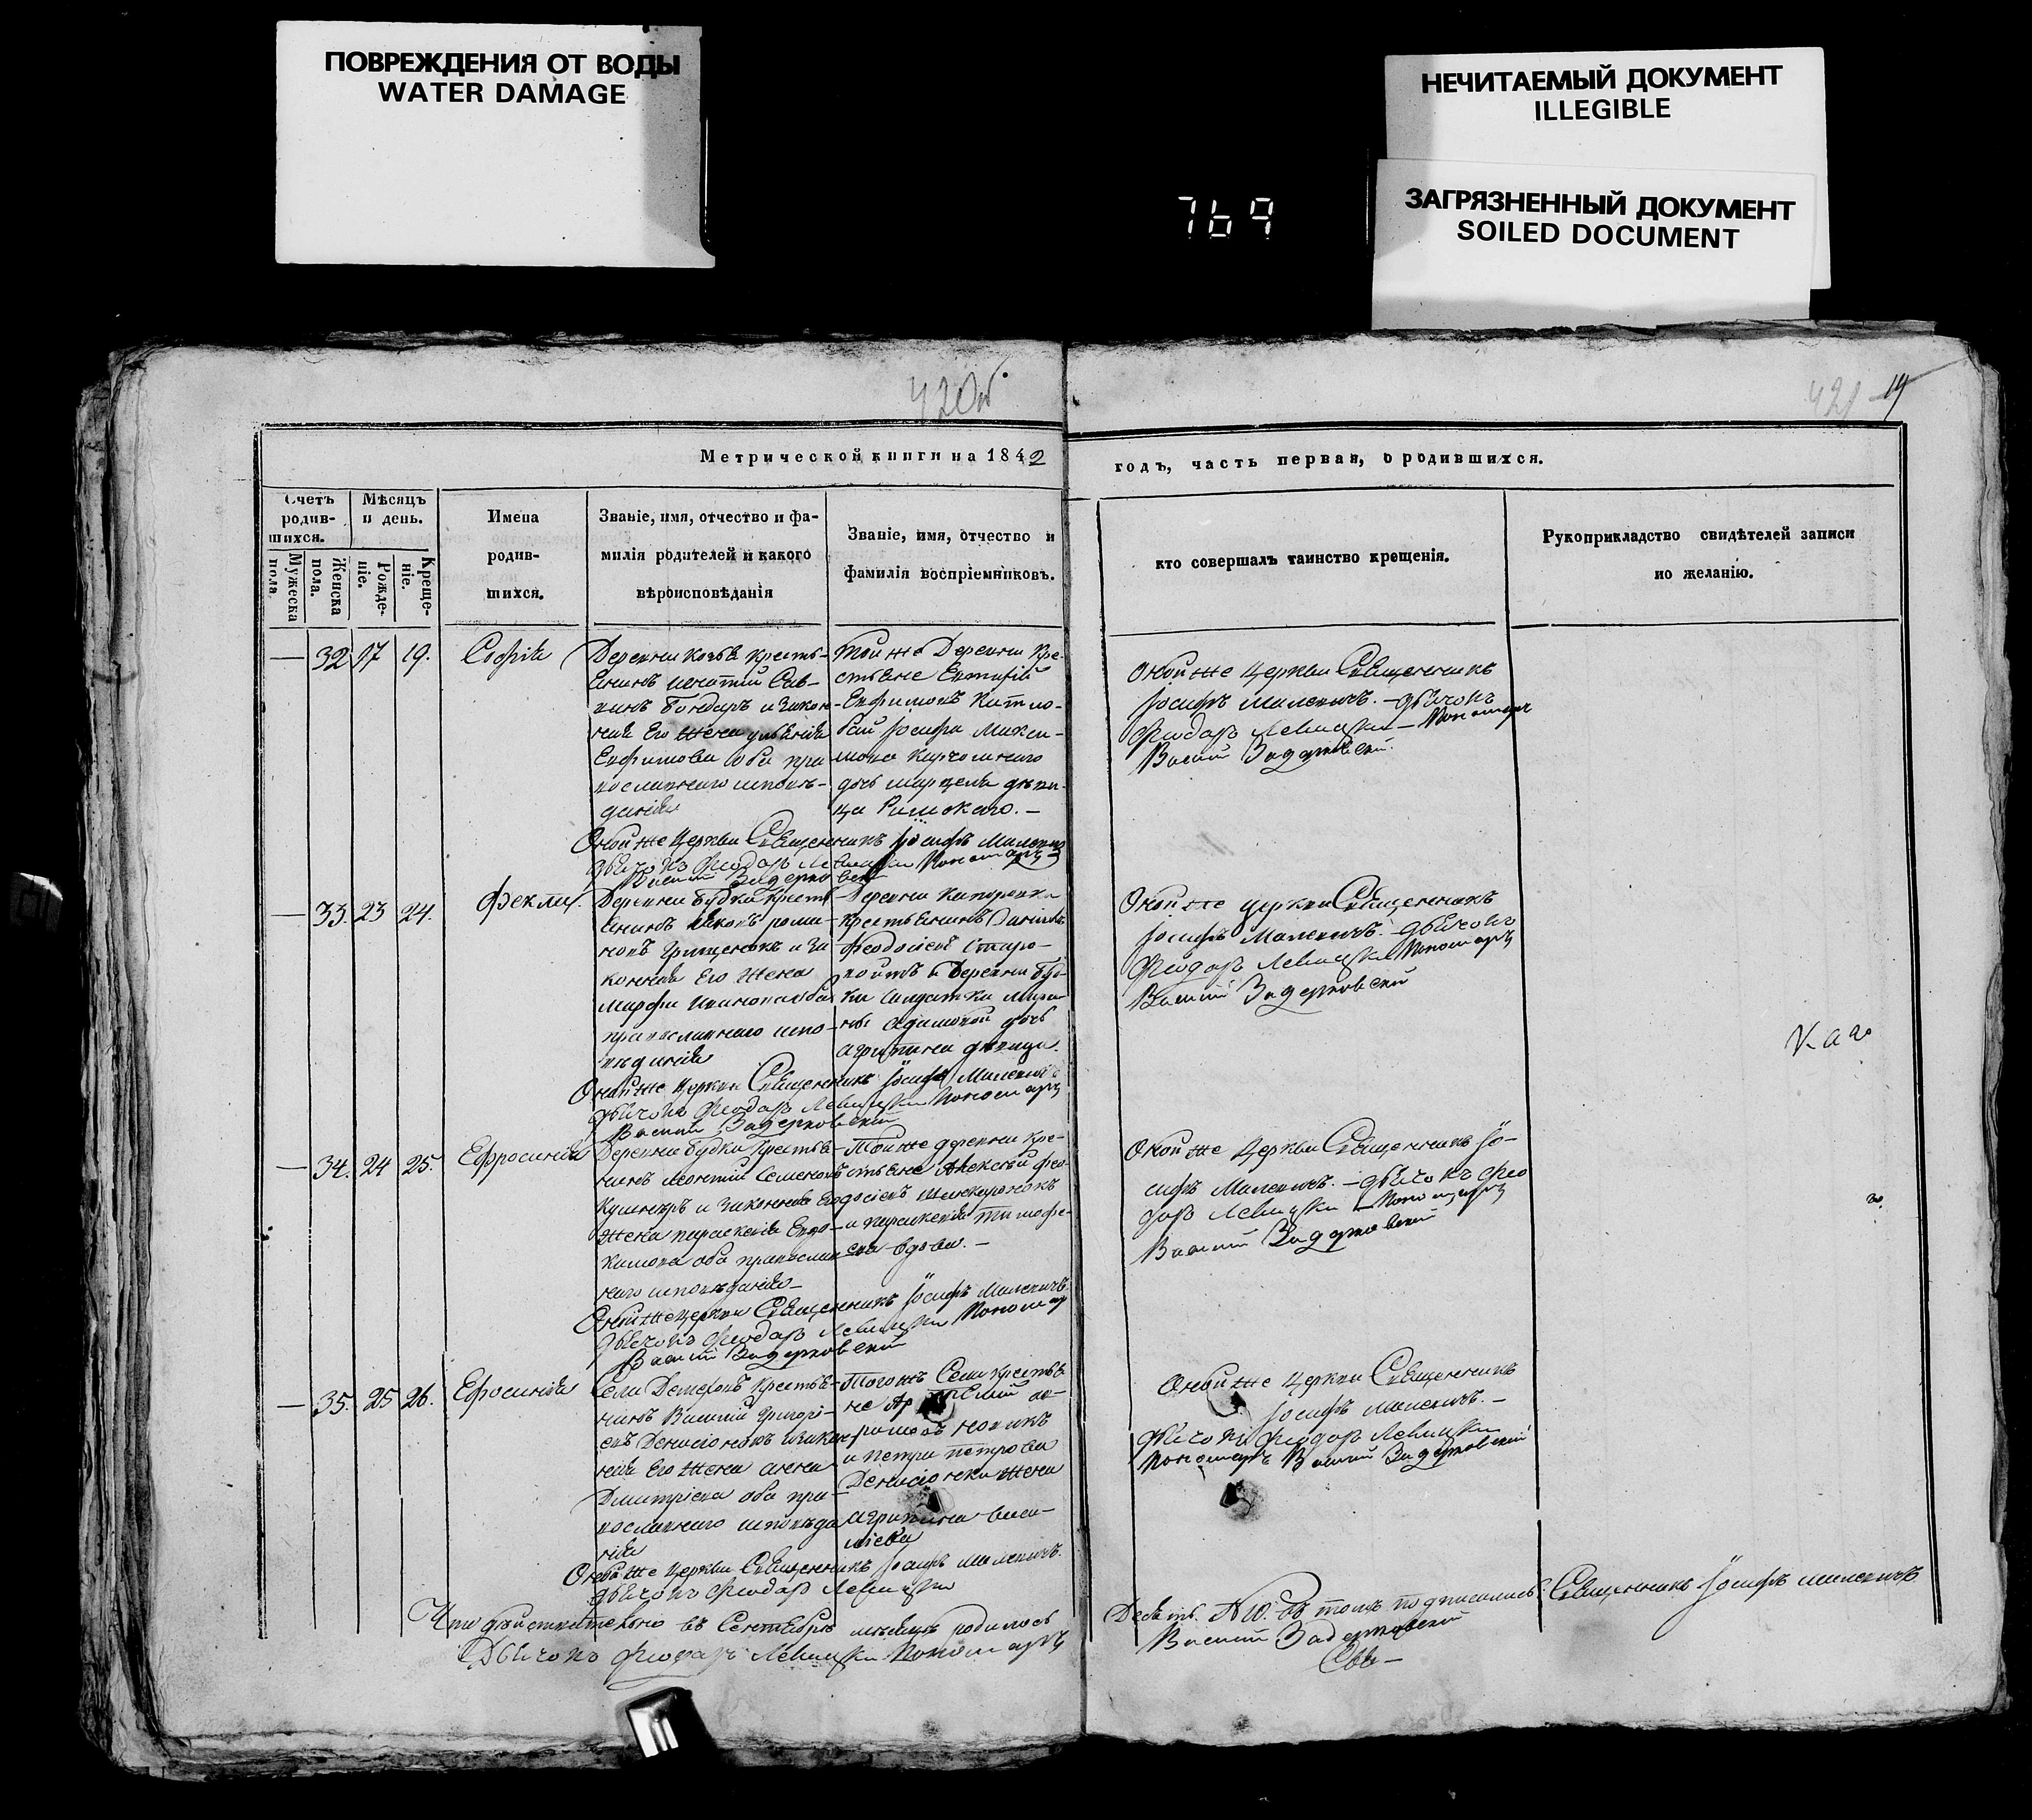 ПОВРЕЖДЕНИЯ ОТ ВОДЫ
WATER DAMAGE
НЕЧИТАЕМЫЙ ДОКУМЕНТ
ILLEGIBLE
769
ЗАГРЯЗНЕННЫЙ ДОКУМЕНТ
SOILED DOCUMENT
420об.
421 19
Метрической книги на 1842
годъ, часть первая, о родившихся.
Счетъ
родив-
шихся.
Мужеска
пола.
Женска
пола.
Мѣсяцъ
и день.
Рожде-
ніе.
Креще-
ніе.
Имена
родив-
шихся.
Званіе, имя, отчество и фа-
милія родителей и какого
вѣроисповѣданія
Званіе, имя, отчество и
фамилія воспріемниковъ.
кто совершалъ таинство крещенія.
Рукоприкладство свидѣтелей записи
по желанію.
— 32 17 19.
Софія
Деревни крестья-
янинъ Игнатій Сав-
Бондарь и закон-
ная Его жена
Евфимова оба пра-
вославнаго исповѣ-
данія
Той же Деревни Кре-
стьяне Евтихій
Евфимовъ
Іосифа Макси-
мова
дочь дѣви-
ца Римскаго. —
Оной же Церкви Священникъ
Іосифъ Малевичъ. — дьячокъ
Феодоръ Левицкій — Пономарь
Василій Задерковскій.
Оной же Церкви Священникъ Іосифъ Малевичъ
дьячокъ Феодоръ Левицкій Пономарь
Василій Задерковскій
— 33. 23 24.
Фекла.
Деревни Будки крестья-
янинъ Іаковъ Рома-
новъ Грищенокъ и за-
конная Его жена
Марфа Иванова оба
православнаго испо-
вѣданія
Деревни
крестьянинъ Даніилъ
Феодосіевъ Старо-
войтъ и Деревни Буд-
ки Солдатки Мари-
ны Адамовой дочь
Агрипина дѣвица.
Оной же церкви Священникъ
Іосифъ Малевичъ. — дьячокъ
Феодоръ Левицкій Пономарь
Василій Задерковскій
Оной же Церкви Священникъ Іосифъ Малевичъ
дьячокъ Феодоръ Левицкій Пономарь
Василій Задерковскій
— 34. 24 25.
Ефросинія
Деревни Будки Крестья-
нинъ Леонтій Семеновъ
Кушнеръ и законная Его
жена Параскевія Евдо-
кимова оба православ-
наго исповѣданія —
Той же деревни кре-
стьяне Алексѣй Фео-
досіевъ
и Параскевія Тимофе-
ева вдова. —
Оной же Церкви Священникъ Іо-
сифъ Малевичъ. — дьячокъ Фео-
доръ Левицкій — Пономарь
Василій Задерковскій
Оной же церкви Священникъ Іосифъ Малевичъ
дьячокъ Феодоръ Левицкій Пономарь
Василій Задерковскій
— 35. 25 26.
Ефросинія
Села Крестья-
нинъ Василій Григорі-
евъ Денисіонокъ и закон-
ная Его жена Анна
Дмитріева оба пра-
вославнаго исповѣда-
нія
Того жъ Села крестья-
не
Новикъ
и Петра Петрова
Денисіонка жена
Агрипина Васи-
ліева
Оной же Церкви Священникъ
Іосифъ Малевичъ. —
дьячокъ Феодоръ Левицкій
Пономарь Василій Задерковскій
Оной же Церкви Священникъ Іосифъ Малевичъ.
дьячокъ Феодоръ Левицкій
Что дѣйствительно въ Сентябрѣ мѣсяцѣ родилось
Десять. № 10. въ томъ подписались: Священникъ Іосифъ Малевичъ
Дьячокъ Феодоръ Левицкій Пономарь
Василій Задерковскій